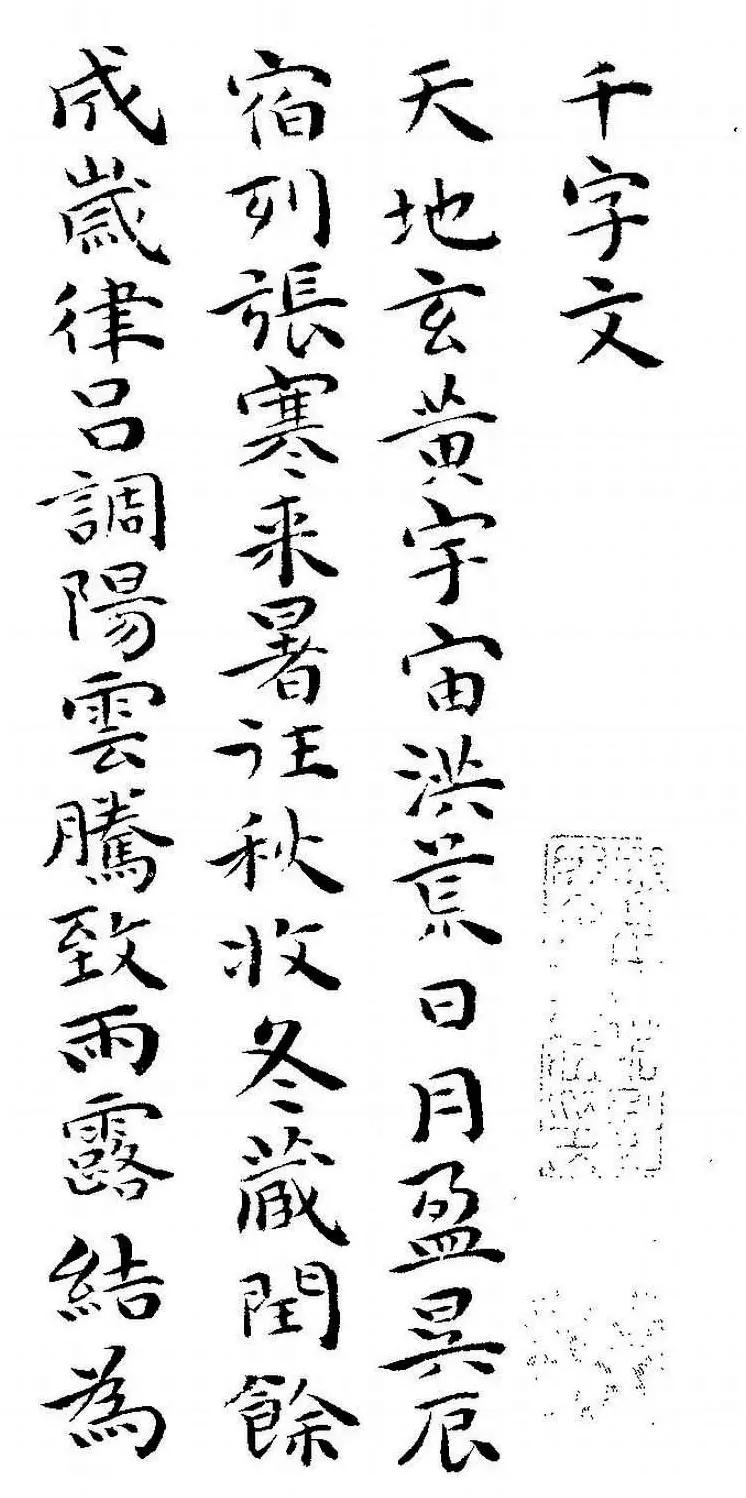 千字文
天地玄黃宇宙洪荒日月盈昃辰
宿列張寒来暑往秋收冬藏閏餘
成歲律呂調陽雲騰致雨露結為